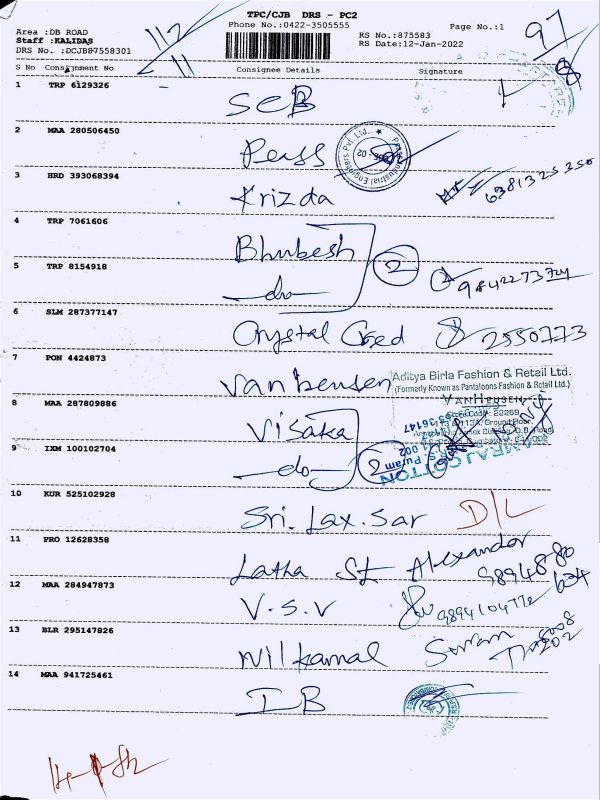 TPC/CJB DRS - PC2
Phone No.:0422-3505555
Page No.:1
Area :DB ROAD
Staff :KALIDAS
DRS No. :DCJB87558301
RS No.:875583
RS Date:12-Jan-2022
112
11
97
8
S No Consignment No Consignee Details Signature
1 TRP 6129326 SCB
2 MAA 280506450 Penss
3 HRD 393068394 Krizda 6381325350
4 TRP 7061606 Bhubesh
2
5 TRP 8154918 -do- 9842273724
6 SLM 287377147 Crystal Creed 2550773
7 PON 4424873 Vanheusen
Aditya Birla Fashion & Retail Ltd.
(Formerly Known as Pantaloons Fashion & Retail Ltd.)
VAN HEUSEN
8 MAA 287809886 Visaka
2
9 IXM 100102704 -do-
10 KUR 525102928 Sri. Lax. Sar D/L
11 PRO 12628358 Latha St Alexandar
12 MAA 284947873 V.S.V
13 BLR 295147826 Nilkamal
14 MAA 941725461 IB